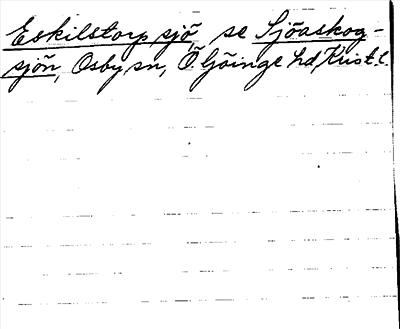 Eskilstorp sjö, se Sjöaskog-
sjön, Osby sn, Ö Göinge hd, Krist. l.